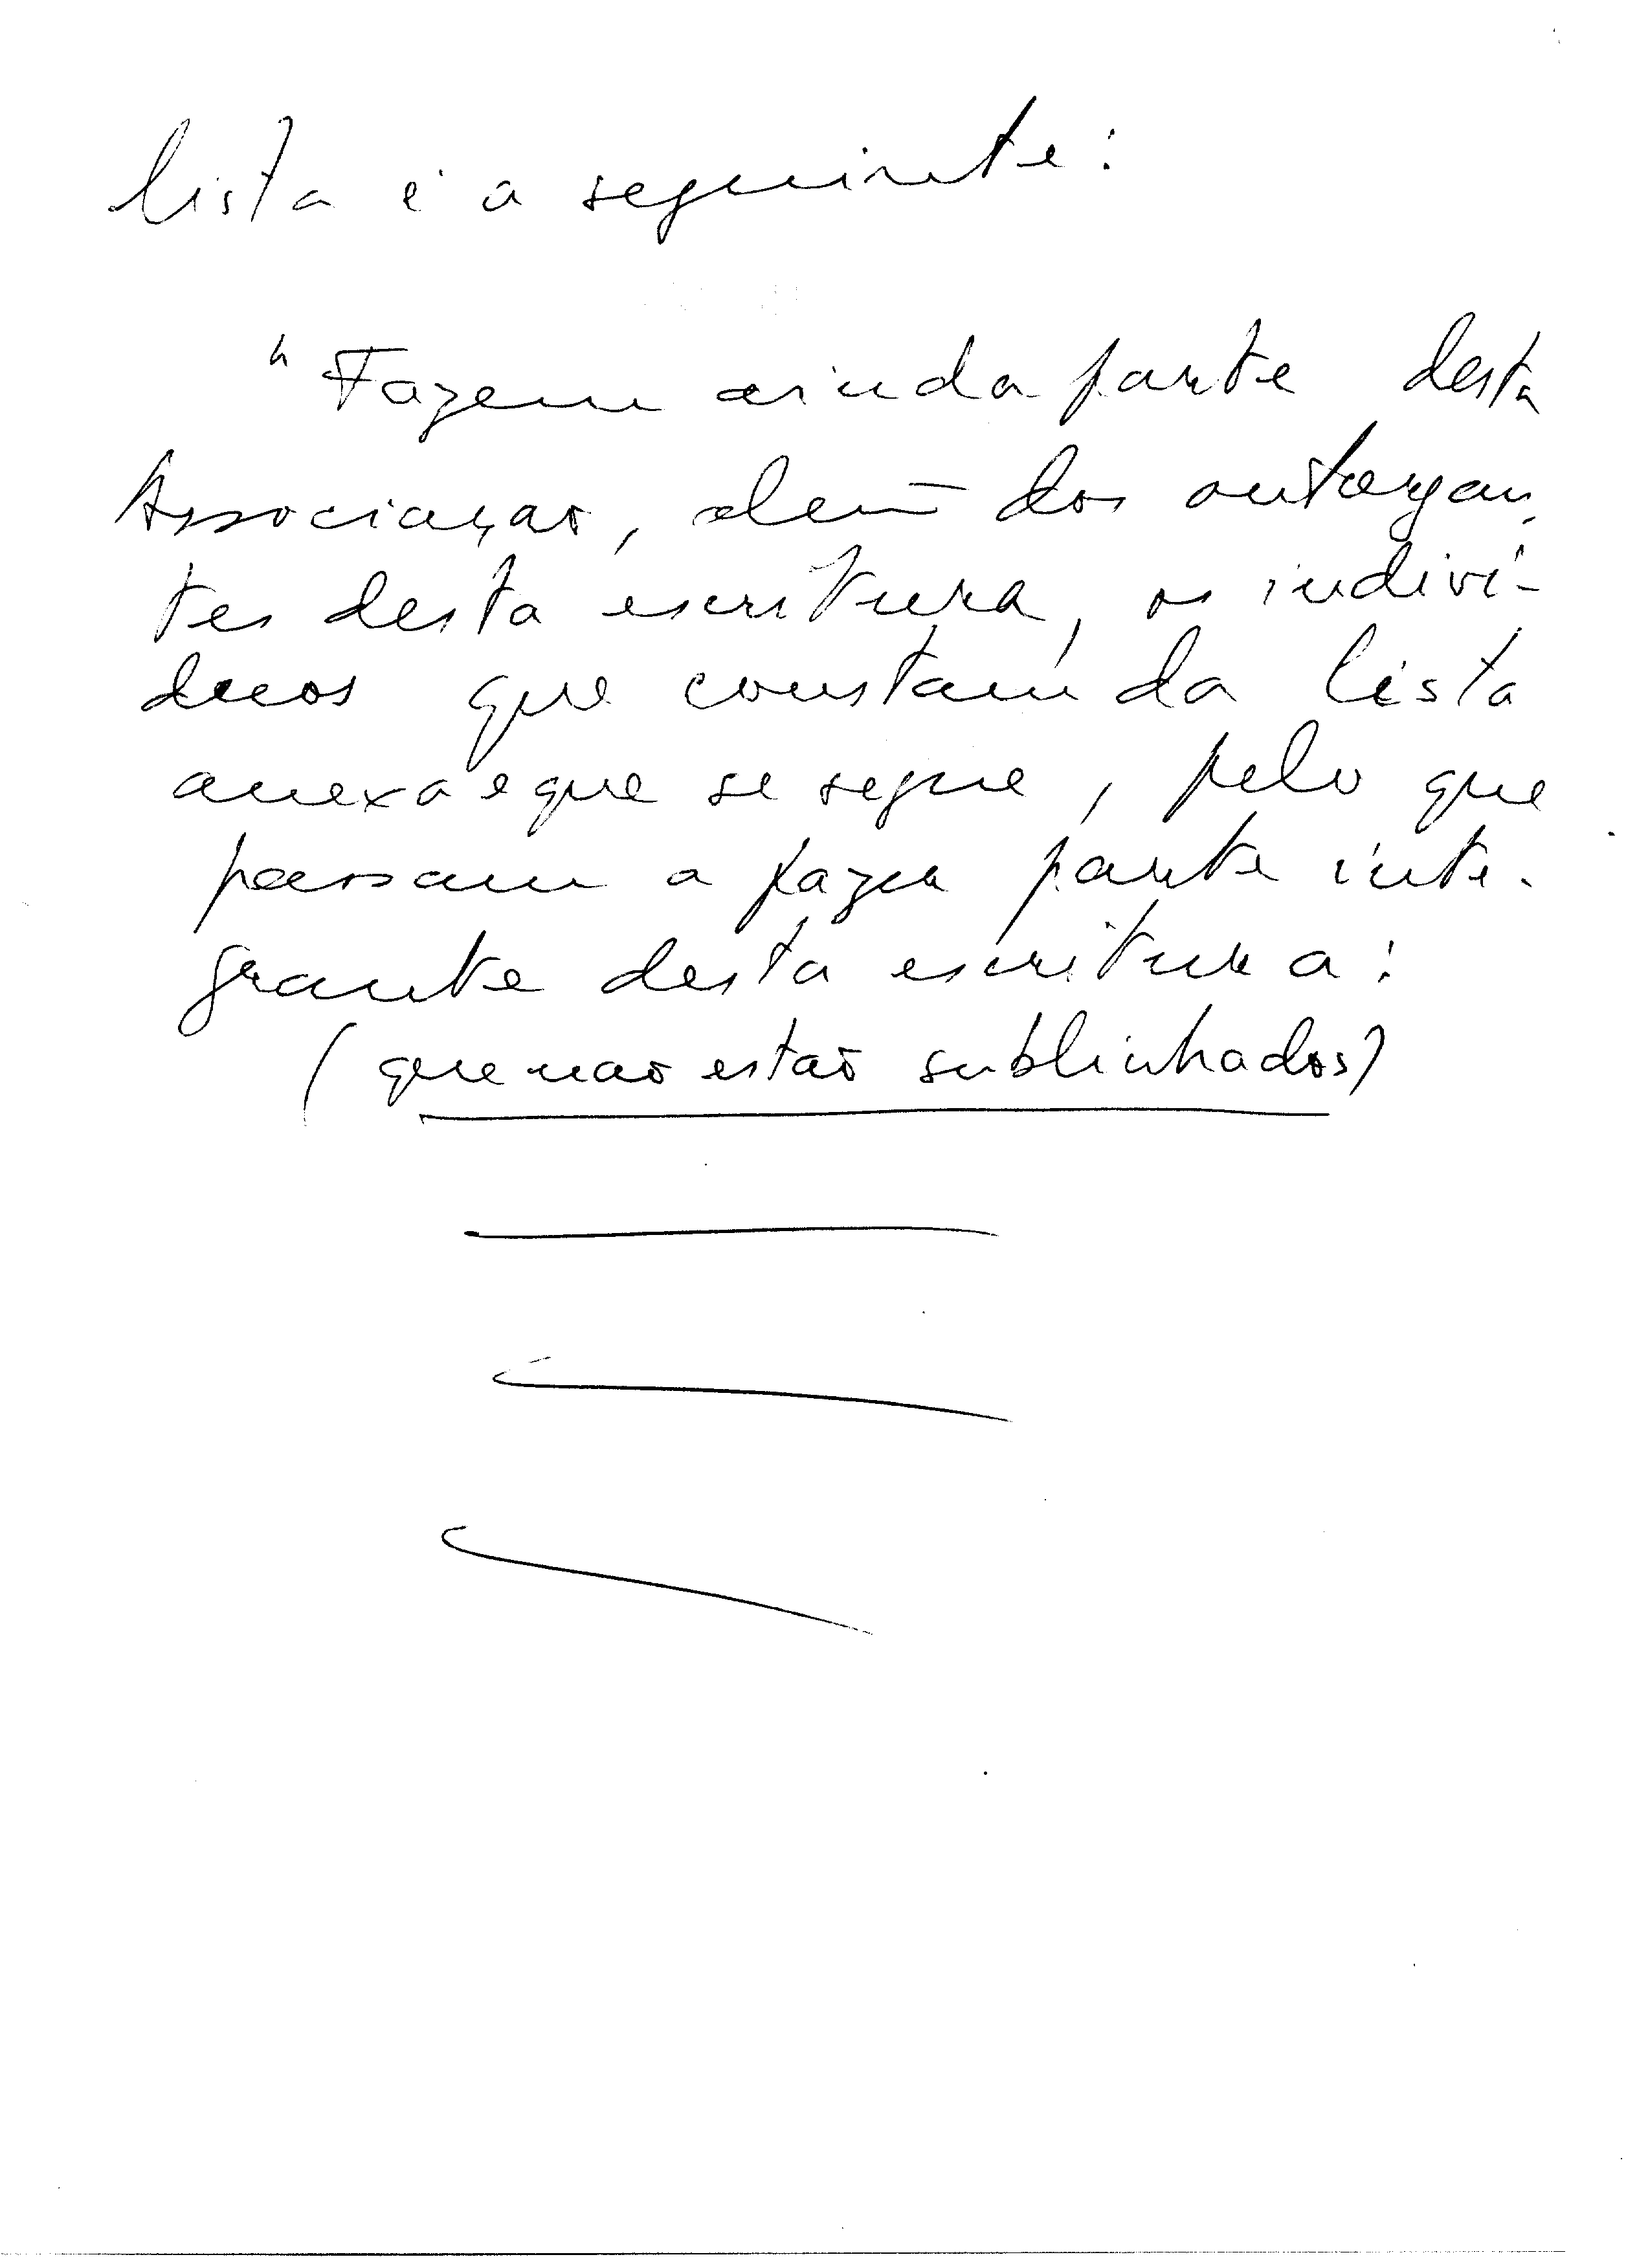 lista é a seguinte:
"Fazem ainda parte desta
Associação, alem dos outorgan-
tes desta escritura, os indiví-
duos que constam da lista
anexa e que se segue, pelo que
passam a fazer parte inte-
grante desta escritura:
(que nao estão sublinhados)